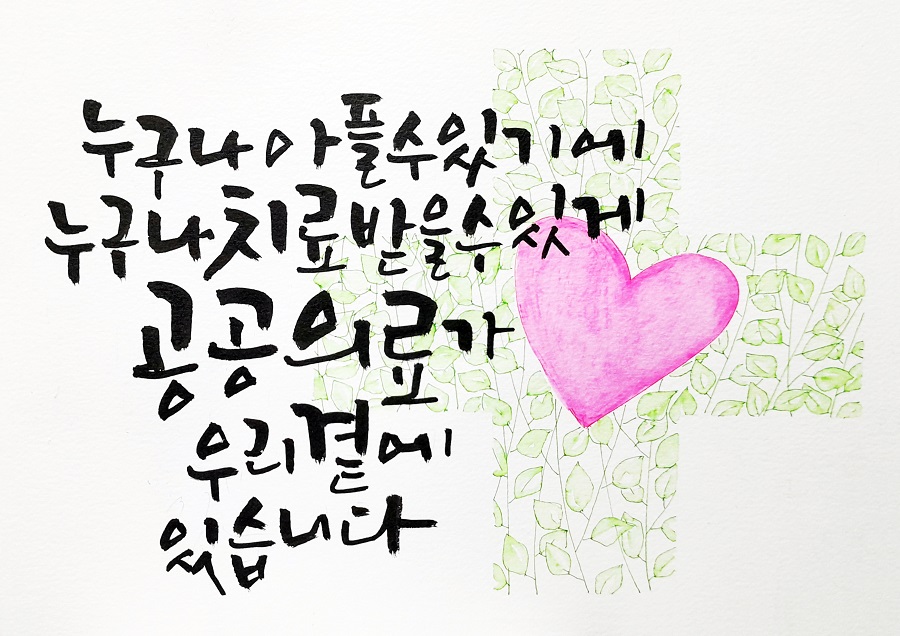 누구나 아플수있기에
누구나 치료받을수있게
공공의료가
우리곁에
있습니다